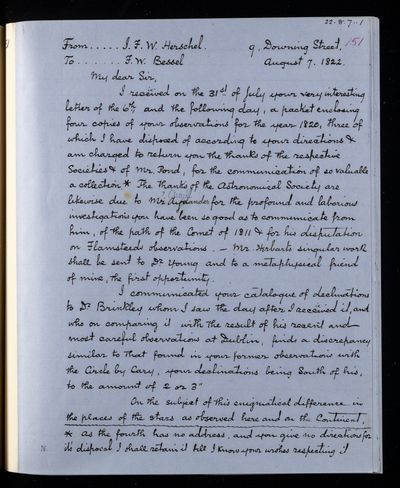 22·8·7··1
From...... J. F. W. Herschel. 9. Downing Street, 151
To........ F. W. Bessel August 7. 1822.
My dear Sir,
I received on the 31st of July your very interesting
letter of the 6th, and the following day, a packet enclosing
four copies of your observations for the year 1820, three of
which I have disposed of according to your directions &
am charged to return you the thanks of the respective
Societies & of Mr. Pond, for the communication of so valuable
a collection * The thanks of the Astronomical Society are
likewise due to Mr. Argelander for the profound and laborious
investigations you have been so good as to communicate from
him, of the path of the Comet of 1811 & for his disputation
on Flamsteeds observations. — Mr. Herbarts singular work
shall be sent to Dr Young and to a metaphysical friend
of mine, the first opportunity.
I communicated your catalogue of declinations
to Dr Brinkley whom I saw the day after I received it, and
who on comparing it with the result of his recent and
most careful observations at Dublin, finds a discrepancy
similar to that found in your former observations with
the Circle by Cary, your declinations being South of his,
to the amount of 2 or 3"
On the subject of this enigmatical difference in
the places of the stars as observed here and on the Continent,
* As the fourth has no address, and you give no directions for
it's disposal I shall retain it till I know your wishes respecting it